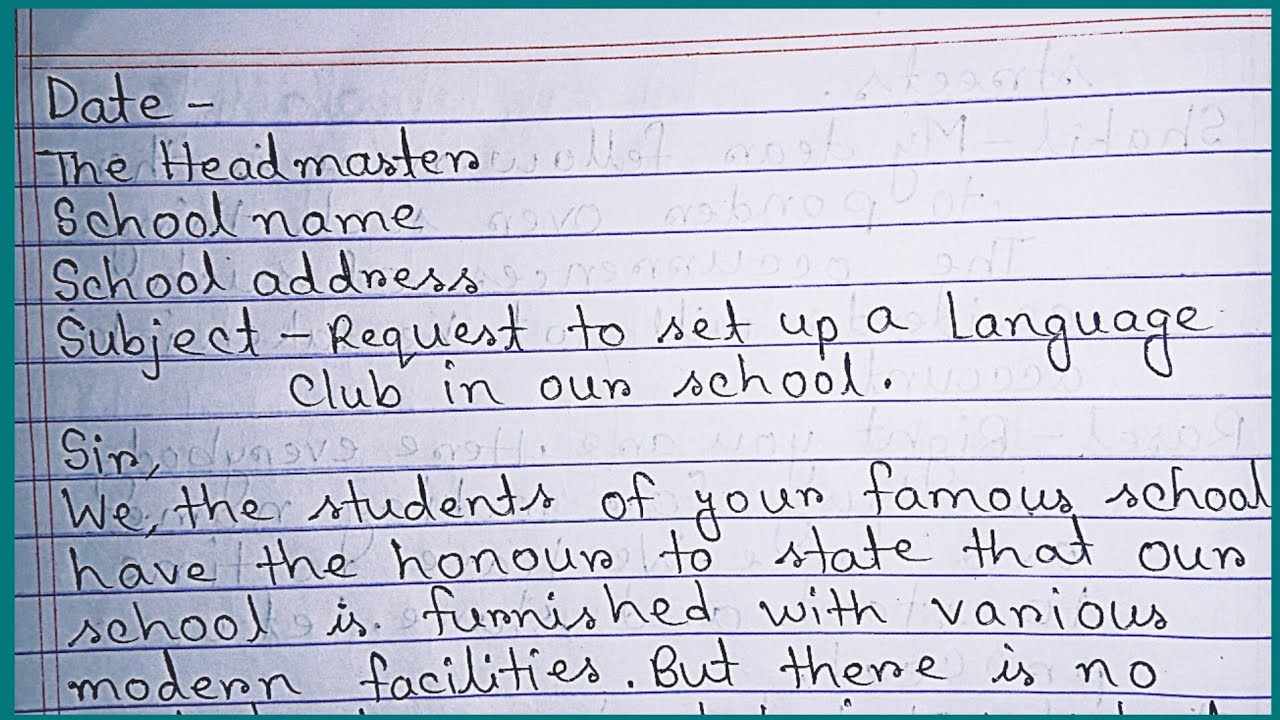 Date -
The Headmaster
School name
School address
Subject - Request to set up a Language
Club in our school.
Sir,
We, the students of your famous school
have the honour to state that our
school is furnished with various
modern facilities. But there is no